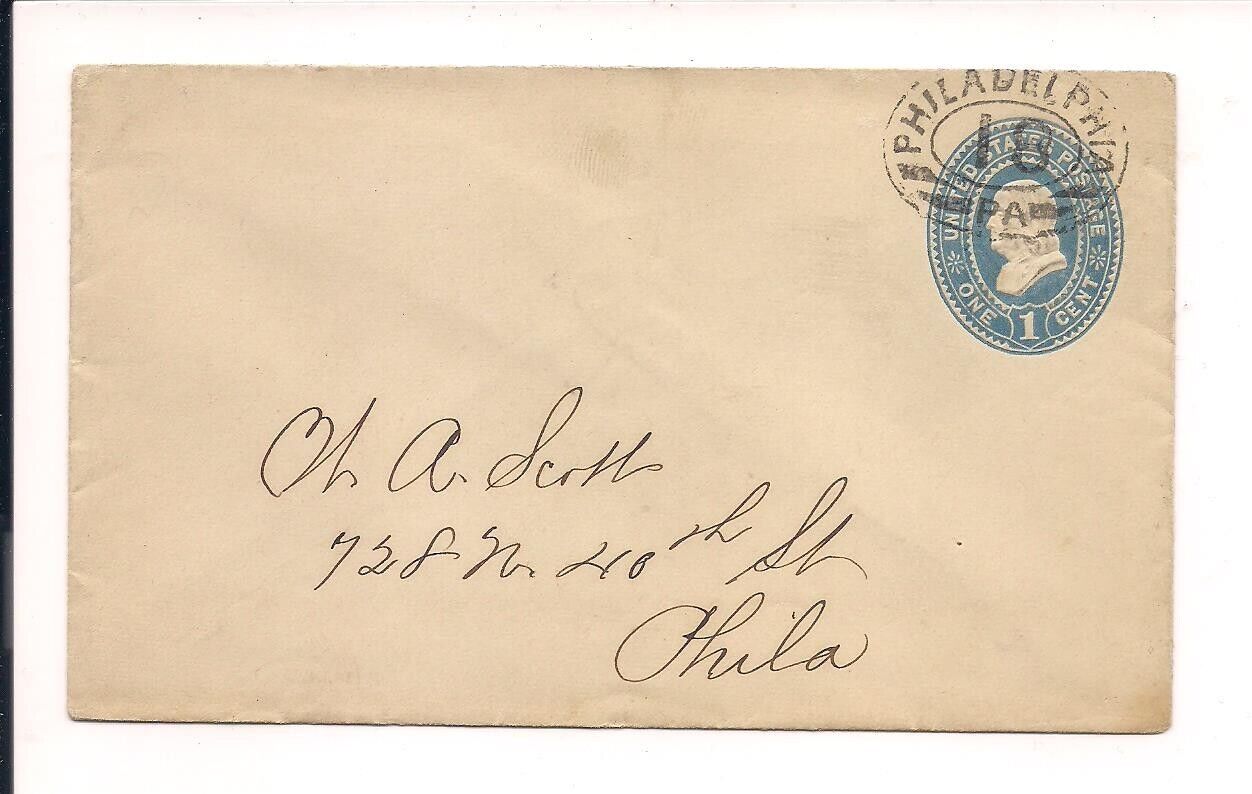 PHILADELPHIA
18
PA
UNITED STATES POSTAGE
ONE 1 CENT
A. Scott
728 N. 40th St
Phila